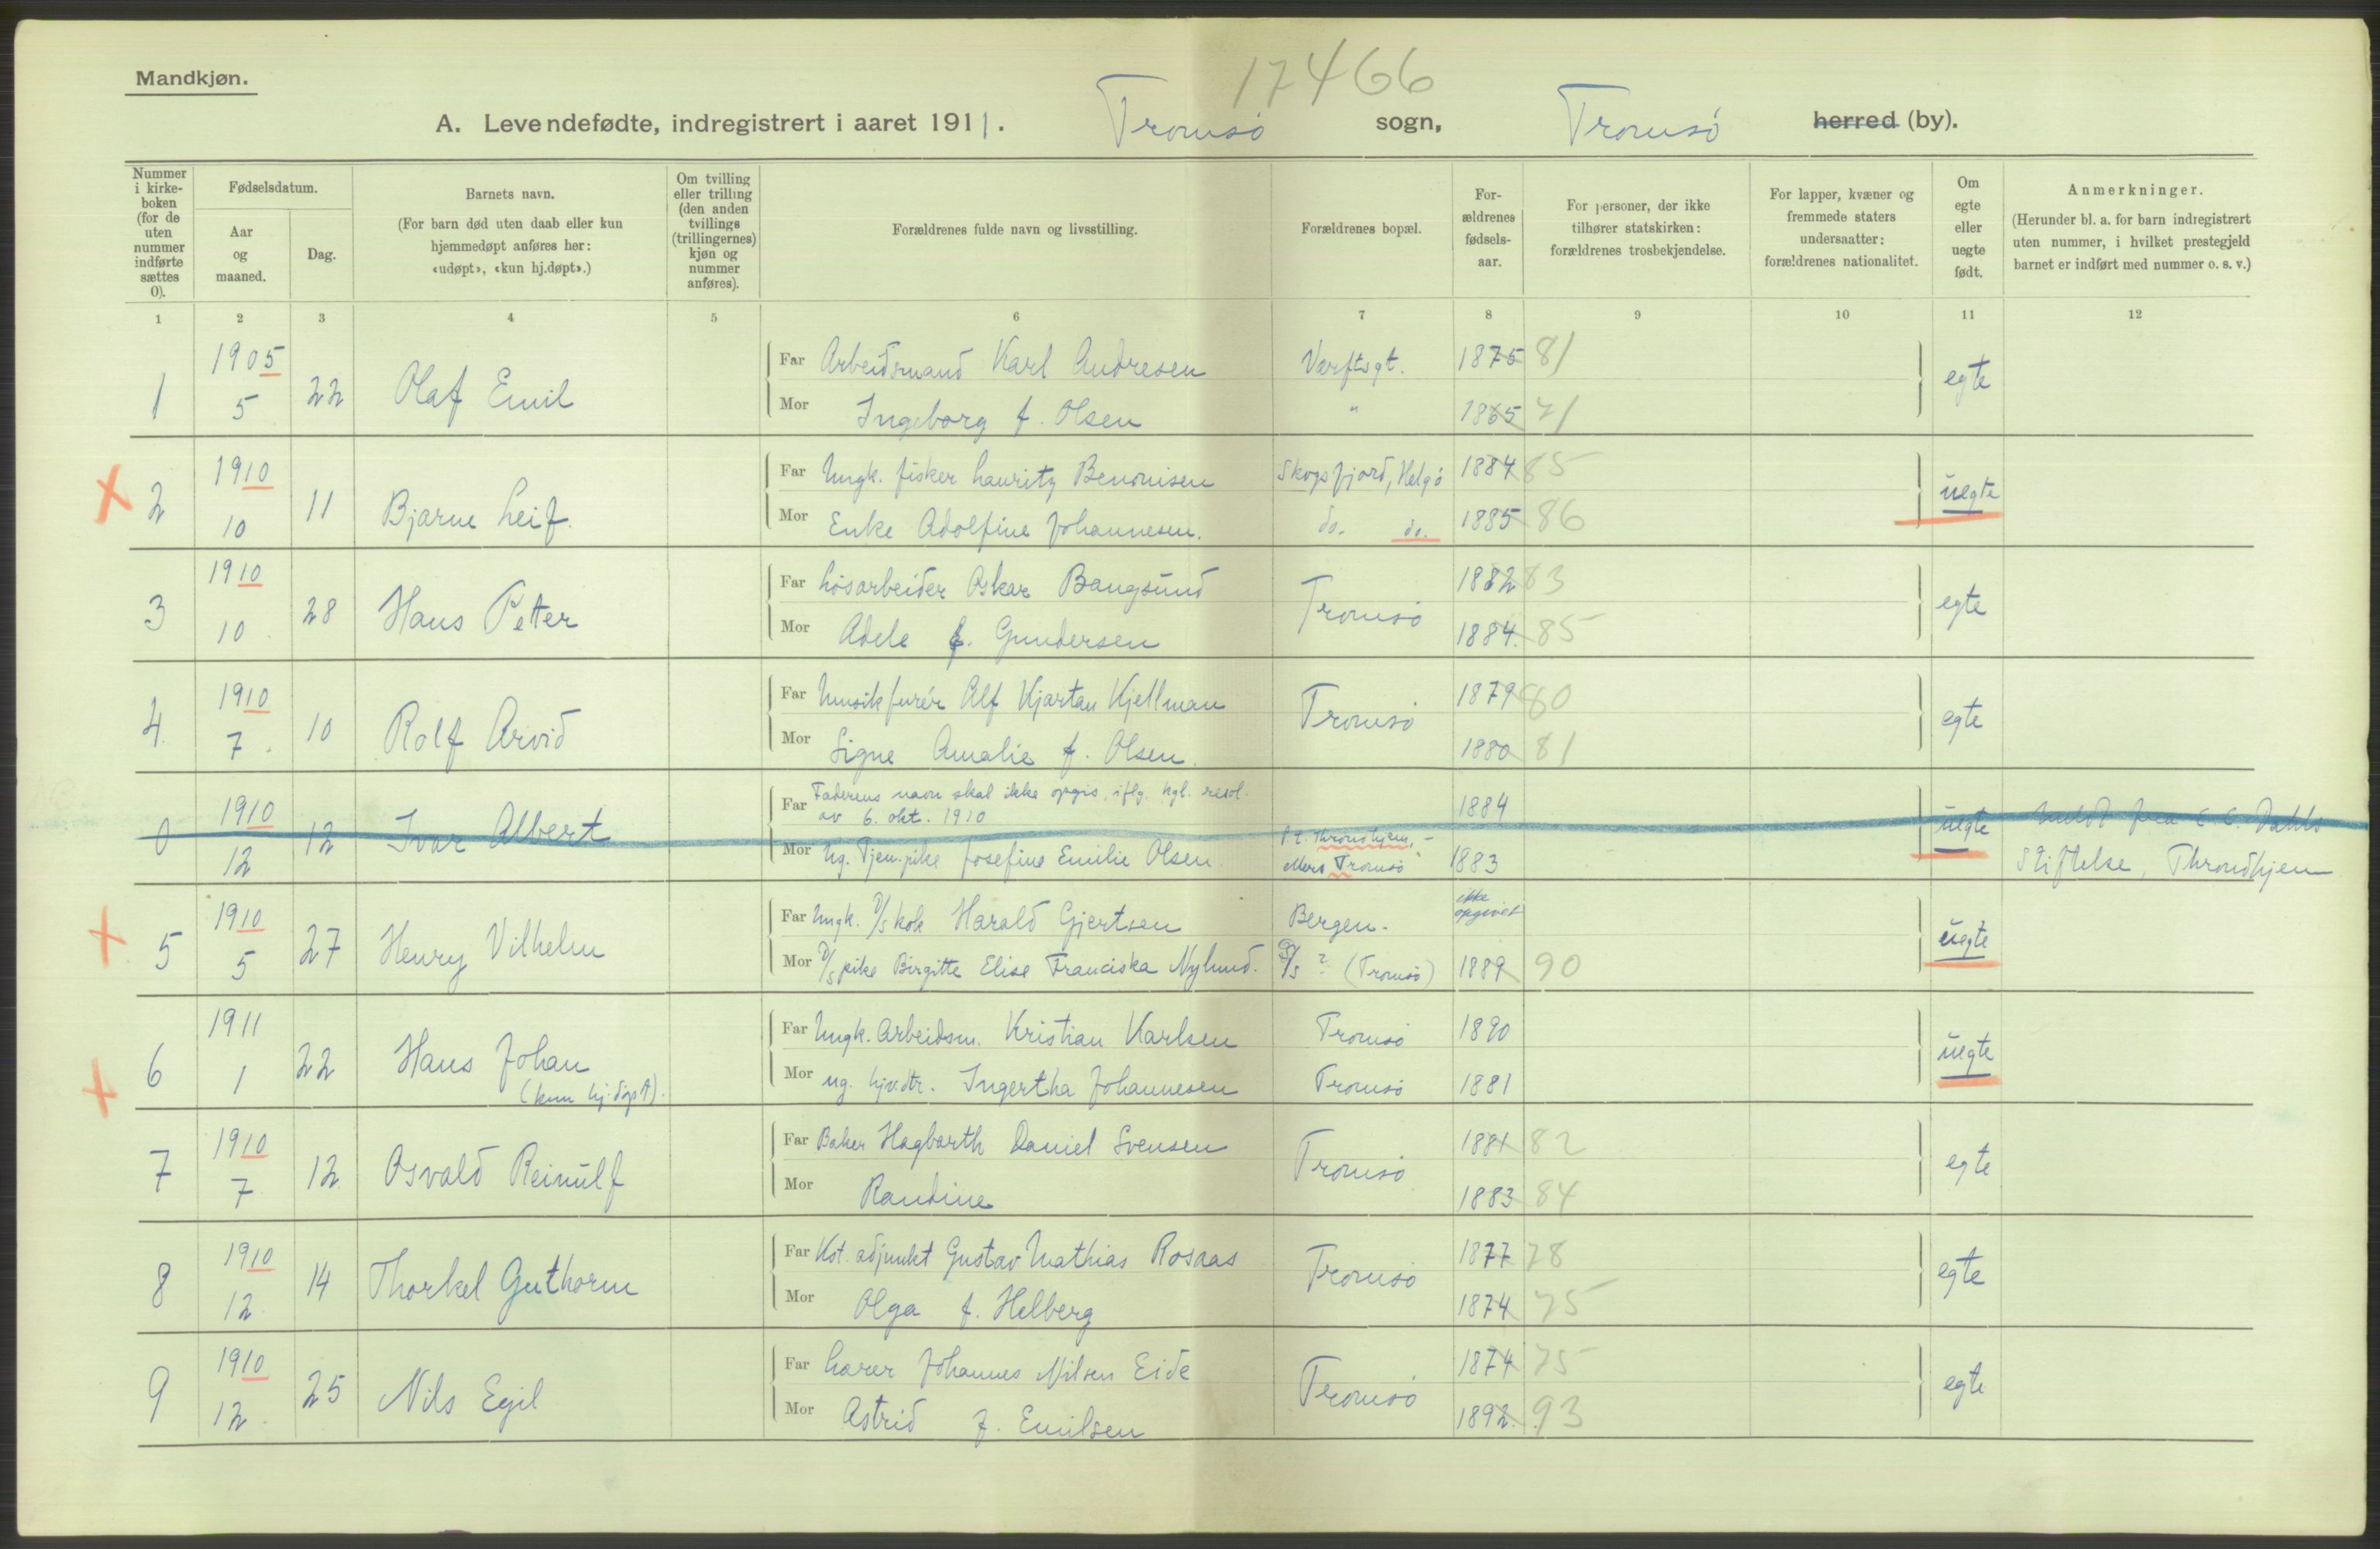 Mandkjøn.
17466
A. Levendefødte, indregistrert i aaret 1911. Tromsø sogn, Tromsø herred (by).
Nummer i kirke-boken (for de uten nummer indførte sættes 0).
Fødselsdatum.
Aar og maaned.
Dag.
Barnets navn.
(For barn død uten daab eller kun hjemmedøpt anføres her: «udøpt», «kun hj.døpt».)
Om tvilling eller trilling (den anden tvillings (trillingernes) kjøn og nummer anføres).
Forældrenes fulde navn og livsstilling.
Forældrenes bopæl.
For-ældrenes fødsels-aar.
For personer, der ikke tilhører statskirken: forældrenes trosbekjendelse.
For lapper, kvæner og fremmede staters undersaatter: forældrenes nationalitet.
Om egte eller uegte født.
Anmerkninger.
(Herunder bl. a. for barn indregistrert uten nummer, i hvilket prestegjeld barnet er indført med nummer o. s. v.)
1 2 3 4 5 6 7 8 9 10 11 12
1 1905 5 22 Olaf Emil
Far Arbeidsmand Karl Andresen Værftsgt. 1875 81
Mor Ingeborg f. Olsen " 1865 71
egte
2 1910 10 11 Bjarne Leif.
Far Ungk. fisker Lauritz Benonisen Skogsfjord, Helgø 1884 85
Mor Enke Adolfine Johannesen. do. do. 1885 86
uegte
3 1910 10. 28 Hans Petter
Far Løsarbeider Oskar Bangsund Tromsø 1882 83
Mor Adele f. Gundersen 1884. 85
egte
4. 1910 7. 10 Rolf Arvid
Far Musikfurér Alf Kjartan Kjellman Tromsø 1879 80
Mor Signe Amalie f. Olsen. 1880 81
egte
0 1910 12 12 Ivar Albert
Far Faderens navn skal ikke opgis, iflg. kgl. resol. av 6. okt. 1910 1884
Mor Ug. Tjen.pike Josefine Emilie Olsen p.t. Throndhjem, - ellers Tromsø 1883
uegte
meldt fra E. C. Dahls
Stiftelse, Throndhjem
5 1910 5 27 Henry Vilhelm
Far Ungk. D/S kok Harald Gjertsen Bergen. ikke opgivet
Mor D/S pike Birgitte Elise Franciska Nylund. D/S ? (Tromsø) 1889 90
uegte
6 1911 1 22 Hans Johan
(kun hj.døpt).
Far Ungk. Arbeidsm. Kristian Karlsen Tromsø 1890
Mor ug. hjv.dtr. Ingertha Johannesen Tromsø 1881
uegte
7 1910 7 12 Osvald Reinulf
Far Baker Hagbarth Daniel Svensen Tromsø 1881 82
Mor Randine 1883 84
egte
8 1910 12 14 Thorkel Guthorm
Far Kst. adjunkt Gustav Mathias Rosaas Tromsø 1877 78
Mor Olga f. Helberg 1874 75
egte
9 1910 12. 25 Nils Egil
Far Lærer Johannes Nilsen Eide Tromsø 1874 75
Mor Astrid f. Emilsen 1892. 93
egte